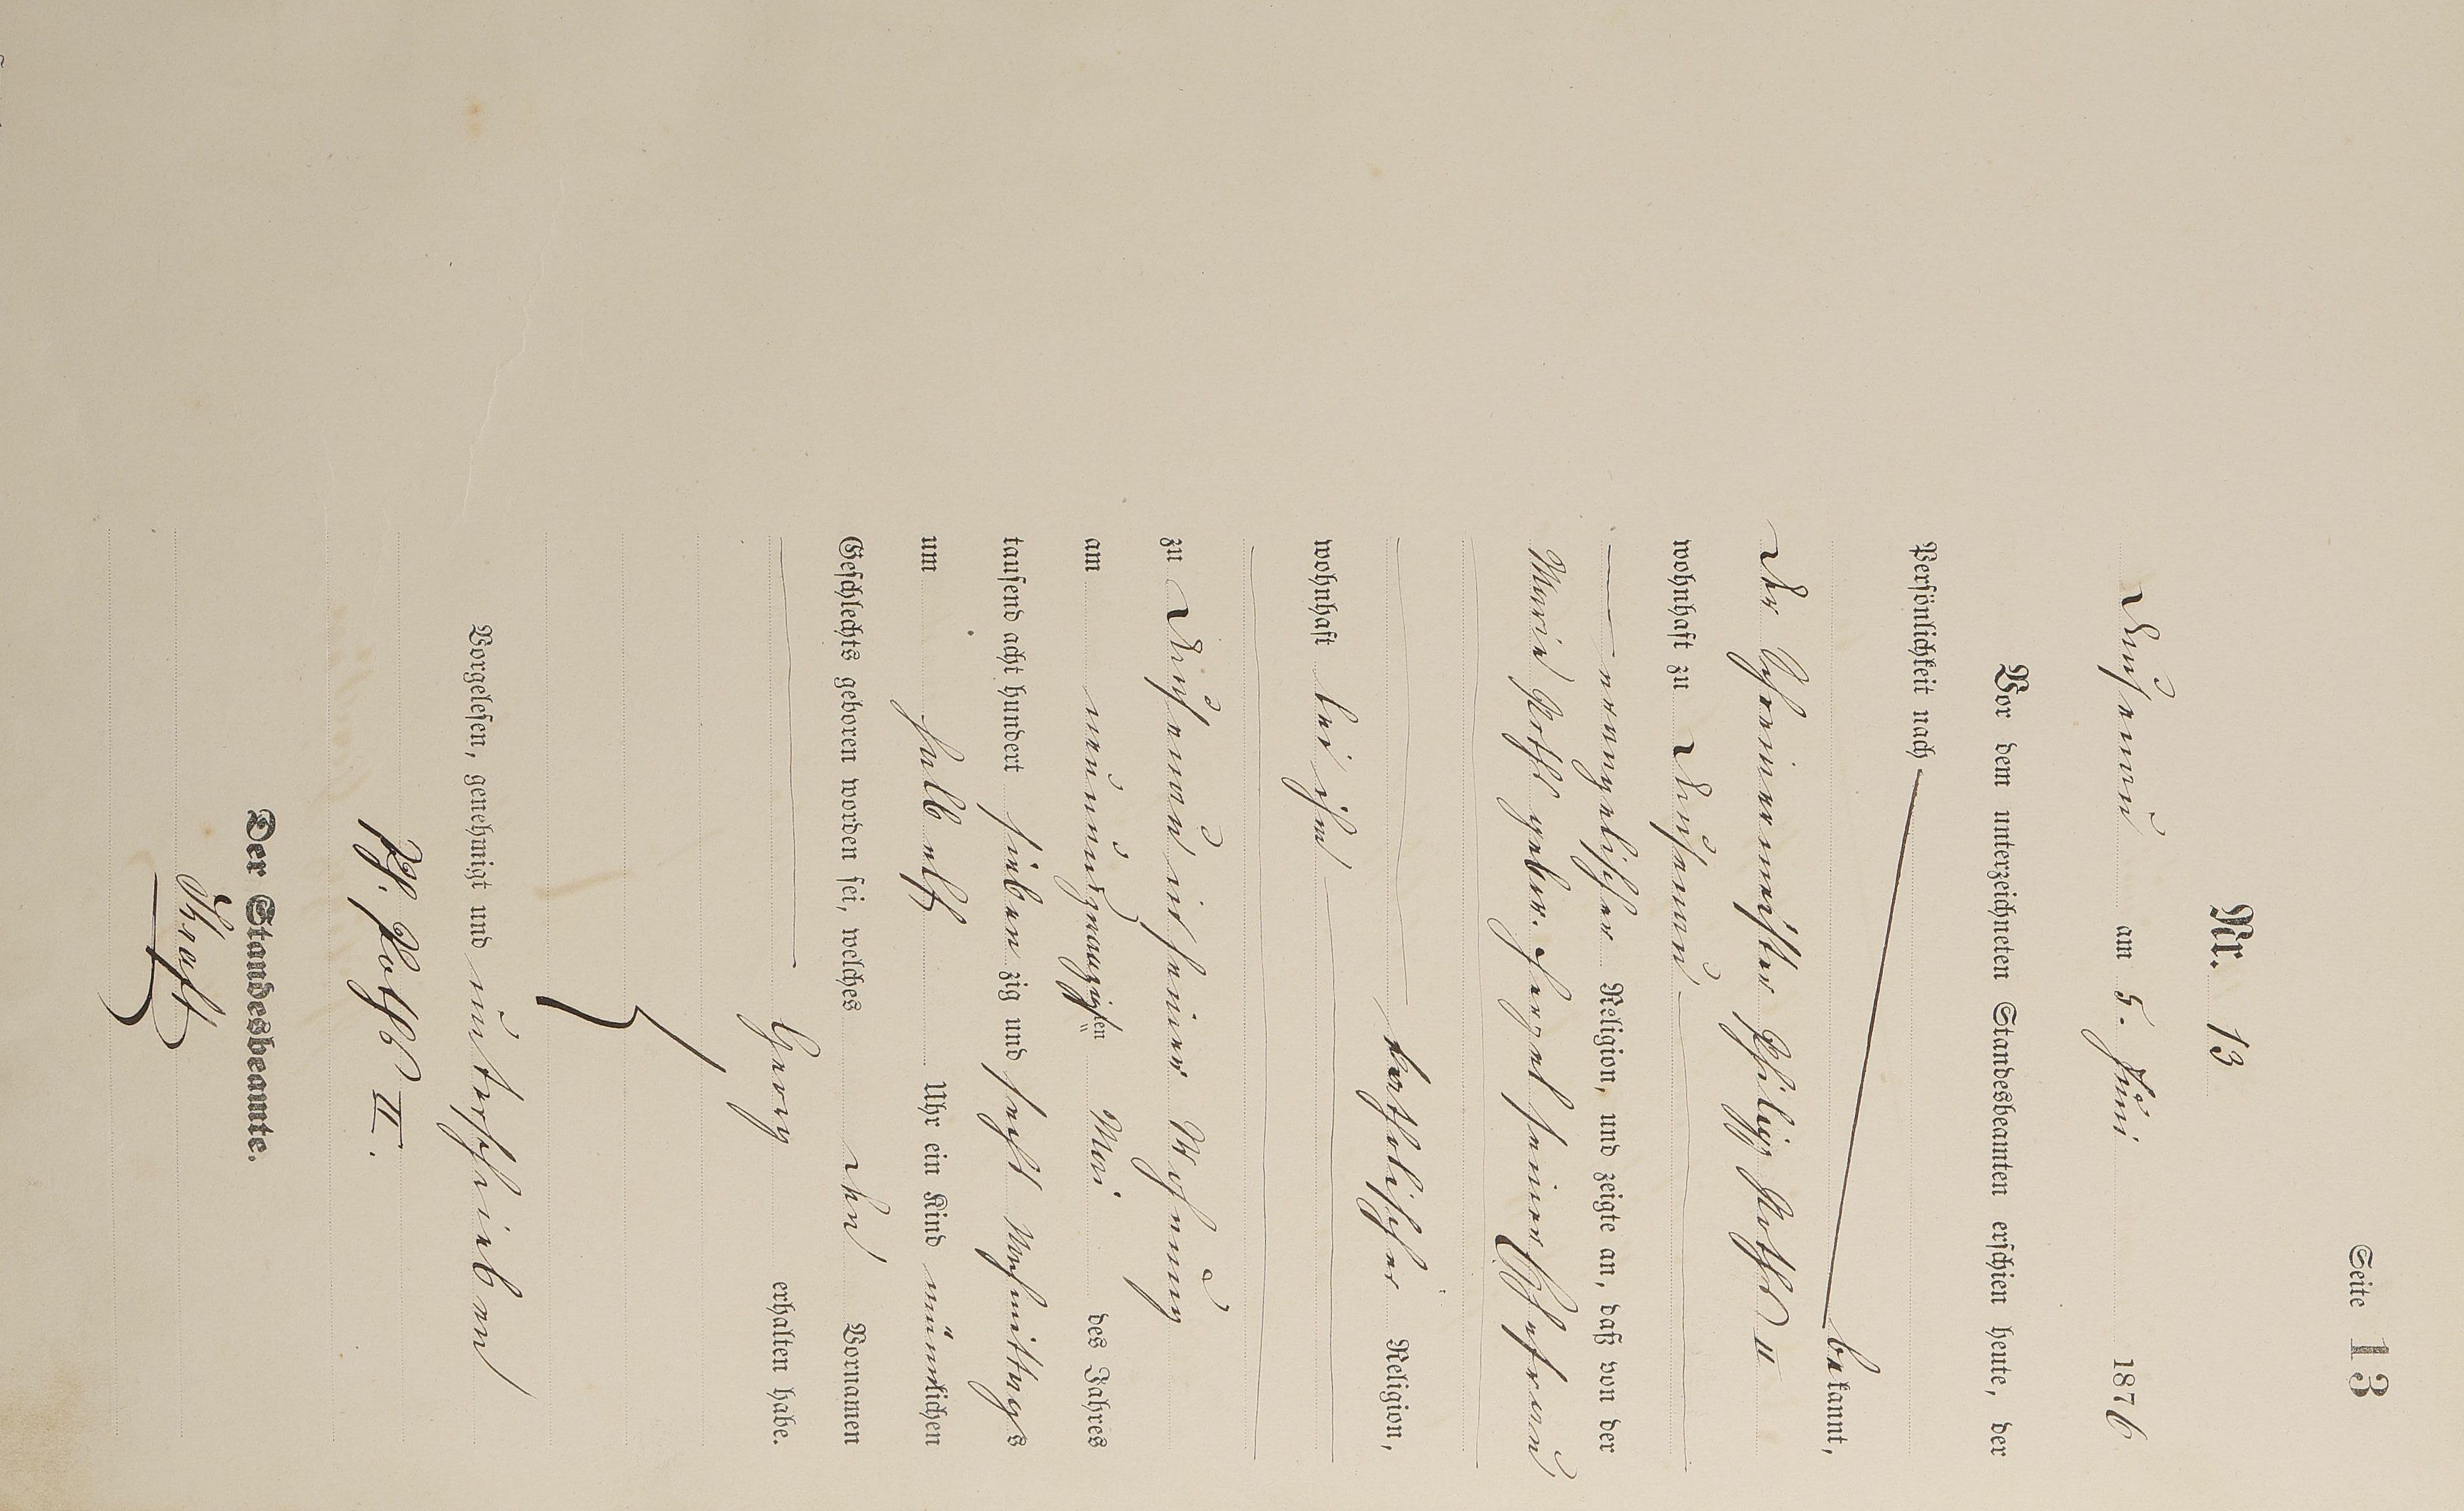 Seite 13
Nr. 13
Dausenau am 5. Juni 1876
Vor dem unterzeichneten Standesbeamten erschien heute, der
Persönlichkeit nach
bekannt,
der Schreinermeister Philipp Roth II
wohnhaft zu Dausenau
evangelischer Religion, und zeigte an, daß von der
Marie Roth gebor. seiner Ehefrau
katholischer Religion,
wohnhaft bei ihm
zu Dausenau in seiner Wohnung
am neunundzwanzigsten Mai des Jahres
tausend acht hundert sieben zig und sechs Nachmittags
um halb elf Uhr ein Kind männlichen
Geschlechts geboren worden sei, welches den Vornamen
Georg erhalten habe.
Vorgelesen, genehmigt und unterschrieben
Ph. Roth II.
Der Standesbeamte.
Kraft